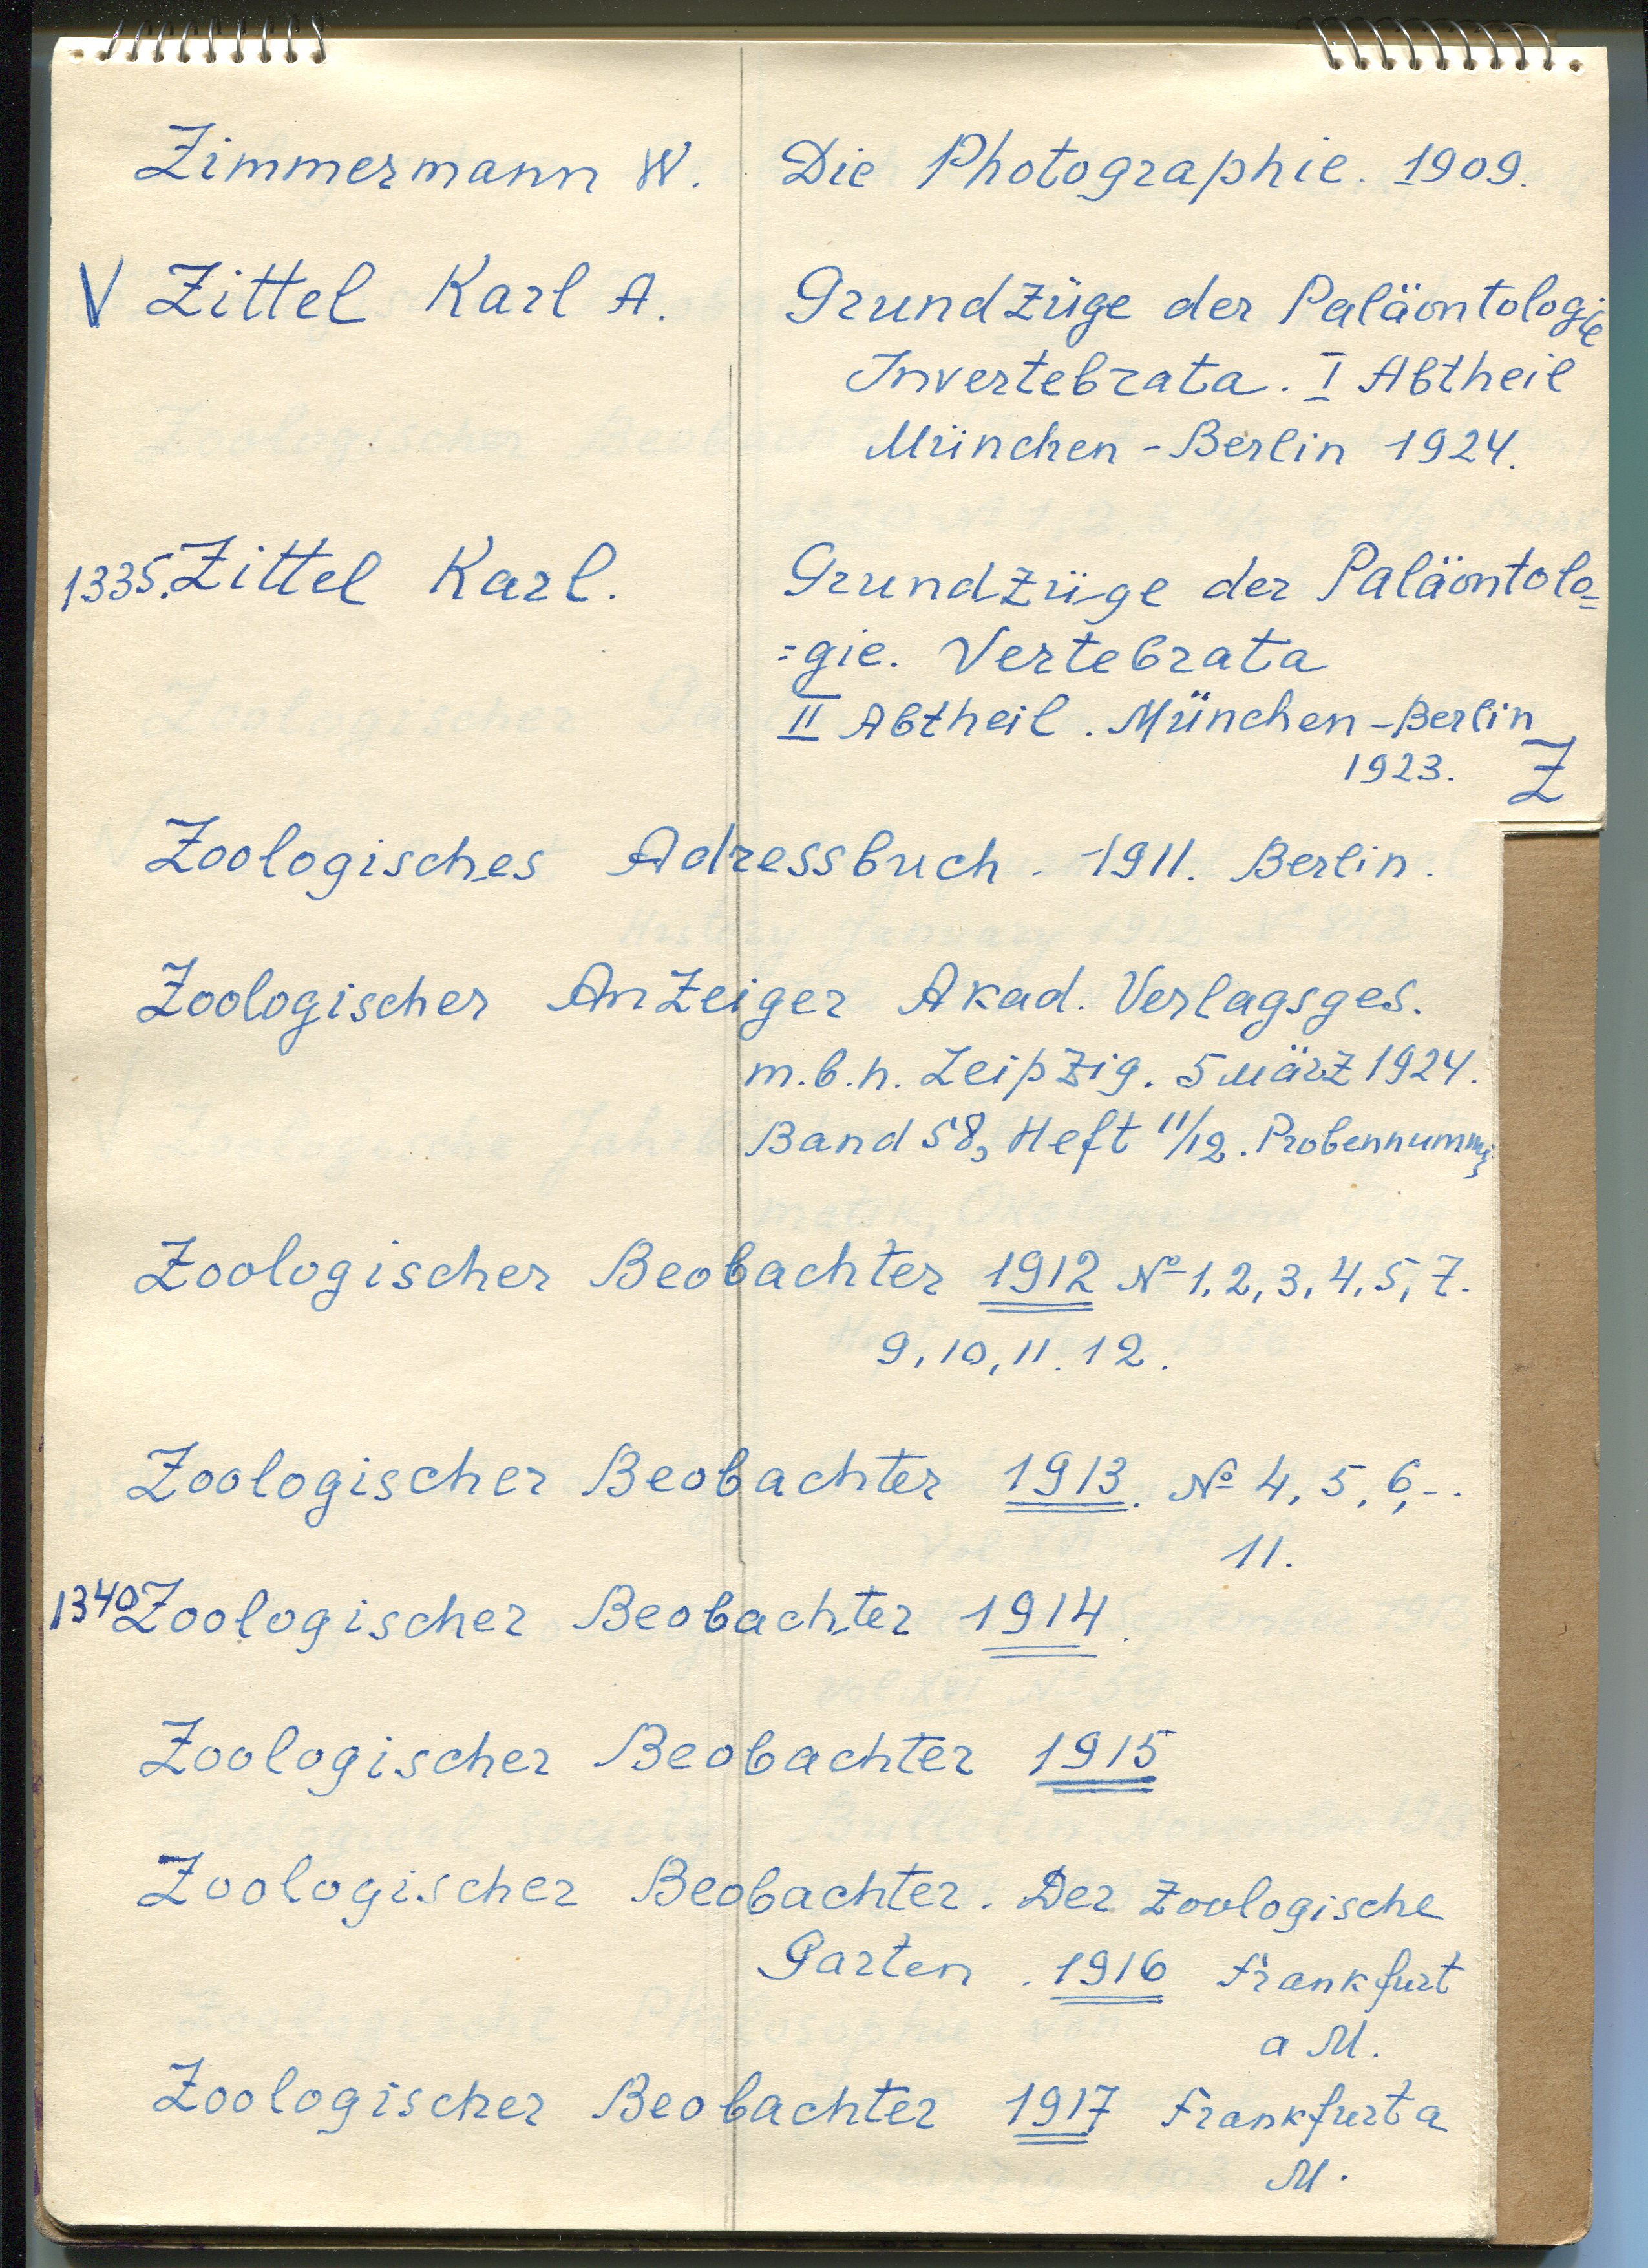 Zimmermann W. Die Photographie. 1909.
V Zittel Karl A. Grundzüge der Paläontologie
Invertebrata. I Abtheil
München - Berlin 1924.
1335. Zittel Karl. Grundzüge der Paläontolo=
=gie. Vertebrata
II Abtheil. München - Berlin
1923. Z
Zoologisches Adressbuch. 1911. Berlin.
Zoologischer Anzeiger Akad. Verlagsges.
m.b.h. Leipzig. 5 März 1924.
Band 58, Heft 11/12. Probennummer
Zoologischer Beobachter 1912 № 1, 2, 3, 4, 5, 7.
9, 10, 11. 12.
Zoologischer Beobachter 1913. № 4, 5, 6, - .
11.
1340 Zoologischer Beobachter 1914.
Zoologischer Beobachter 1915
Zoologischer Beobachter. Der Zoologische
Garten. 1916 Frankfurt
a M.
Zoologischer Beobachter 1917 Frankfurt a
M.